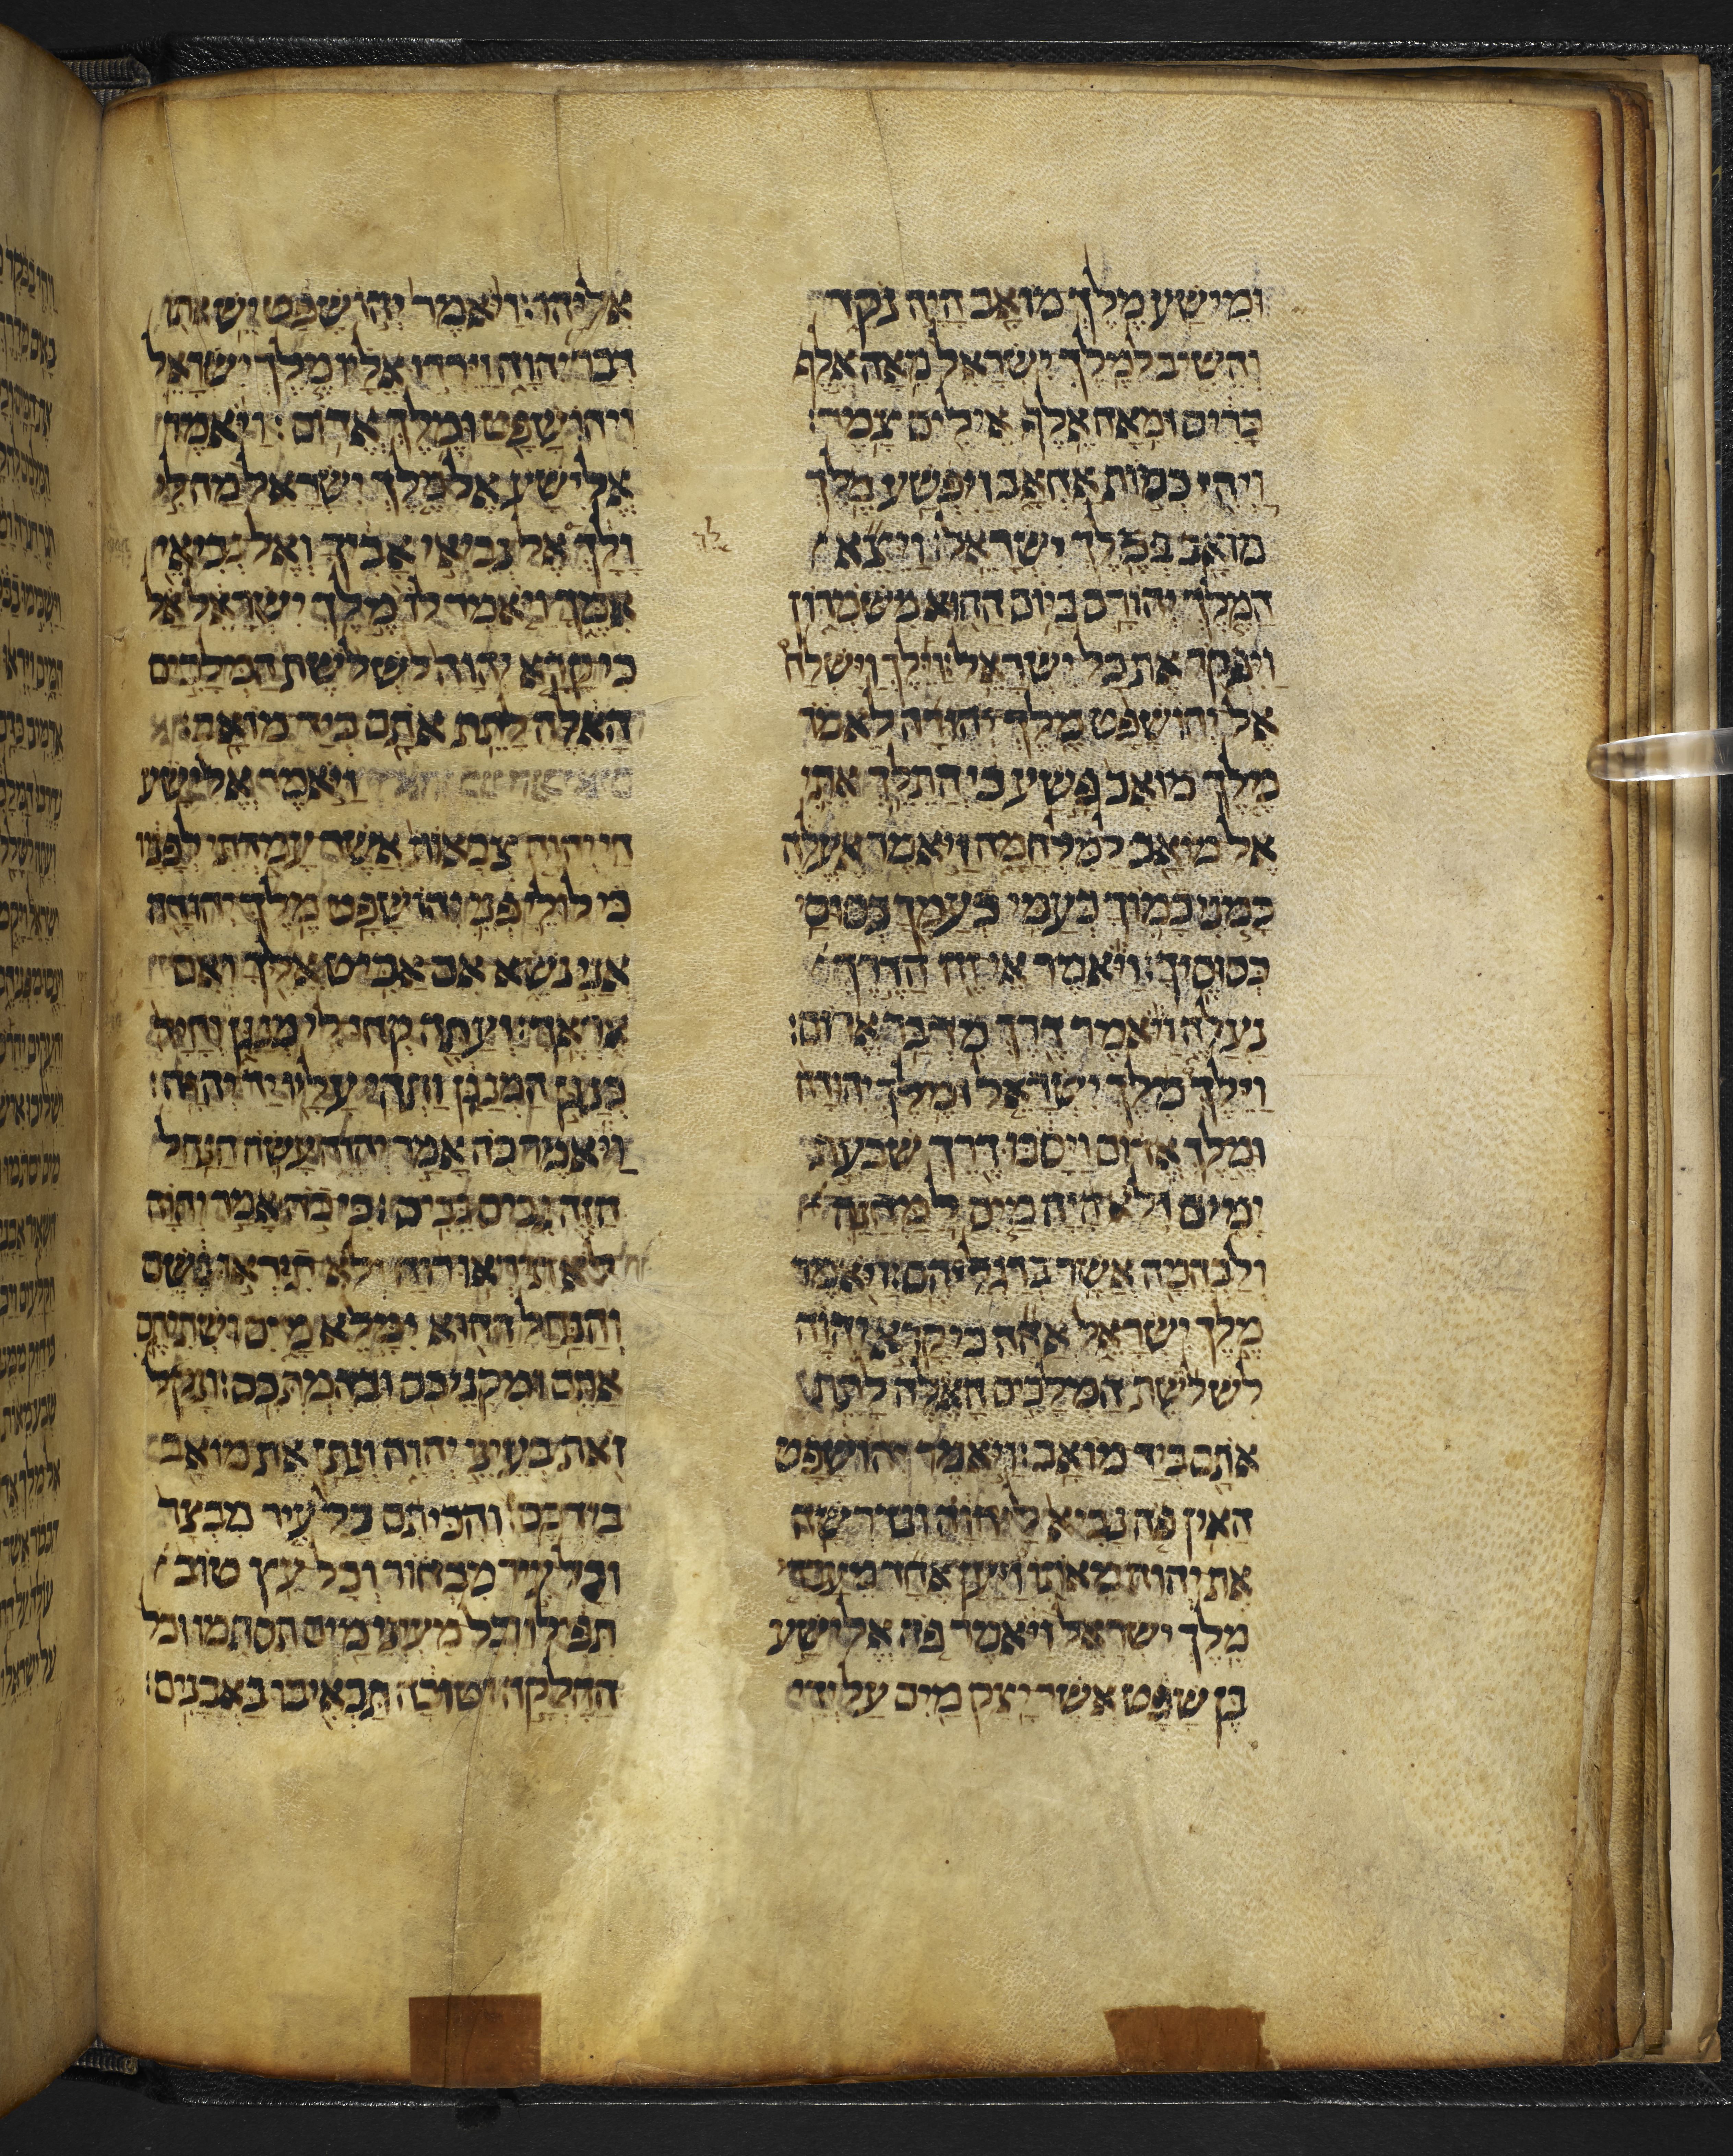 ומישע מלך מואב היה נקד
והשיב למלך ישראל מאה אלף
כרים ומאה אלף אילים צמר:
ויהי כמות אחאב ויפשע מלך
מואב במלך ישראל: ויצא
המלך יהורם ביום ההוא משמרון
ויפקד את כל ישראל: וילך וישלח
אל יהושפט מלך יהודה לאמר
מלך מואב פשע בי התלך אתי
אל מואב למלחמה ויאמר אעלה
כמני כמוך כעמי כעמך כסוסי
כסוסיך: ויאמר אי זה הדרך
נעלה ויאמר דרך מדבר אדום:
וילך מלך ישראל ומלך יהודה
ומלך אדום ויסבו דרך שבעת
ימים ולא היה מים למחנה
ולבהמה אשר ברגליהם: ויאמר
מלך ישראל אהה כי קרא יהוה
לשלשת המלכים האלה לתת
אתם ביד מואב: ויאמר יהושפט
האין פה נביא ליהוה ונדרשה
את יהוה מאתו ויען אחד מעבדי
מלך ישראל ויאמר פה אלישע
בן שפט אשר יצק מים על ידי
אליהו: ויאמר יהושפט יש אתו
דבר יהוה וירדו אליו מלך ישראל
ויהושפט ומלך אדום: ויאמר
אלישע אל מלך ישראל מה לי
ולך לך אל נביאי אביך ואל נביאי
אמך ויאמר לו מלך ישראל אל
כי קרא יהוה לשלשת המלכים
האלה לתת אתם ביד מואב:
ויאמר אלישע
חי יהוה צבאות אשר עמדתי לפניו
כי לולי פני יהושפט מלך יהודה
אני נשא אם אביט אליך ואם
אראך: ועתה קחו לי מנגן והיה
כנגן המנגן ותהי עליו יד יהוה:
ויאמר כה אמר יהוה עשה הנחל
הזה גבים גבים: כי כה אמר יהוה
לא תראו רוח ולא תראו גשם
והנחל ההוא ימלא מים ושתיתם
אתם ומקניכם ובהמתכם: ונקל
זאת בעיני יהוה ונתן את מואב
בידכם: והכיתם כל עיר מבצר
וכל עיר מבחור וכל עץ טוב
תפילו וכל מעיני מים תסתמו וכל
החלקה הטובה תכאיבו באבנים: